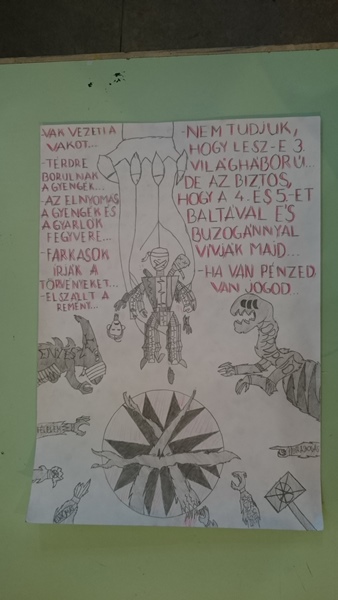 -VAK VEZETI A
VAKOT...
-TÉRDRE
BORULNAK
A GYENGÉK...
-AZ ELNYOMÁS
A GYENGÉK ÉS
A GYARLÓK
FEGYVERE...
-FARKASOK
ÍRJÁK A
TÖRVÉNYEKET...
-ELSZÁLLT A
REMÉNY...
-NEM TUDJUK,
HOGY LESZ-E 3.
VILÁGHÁBORÚ...
DE AZ BIZTOS,
HOGY A 4. ÉS 5.-ET
BALTÁVAL ÉS
BUZOGÁNNYAL
VÍVJÁK MAJD...
-HA VAN PÉNZED
VAN JOGOD...